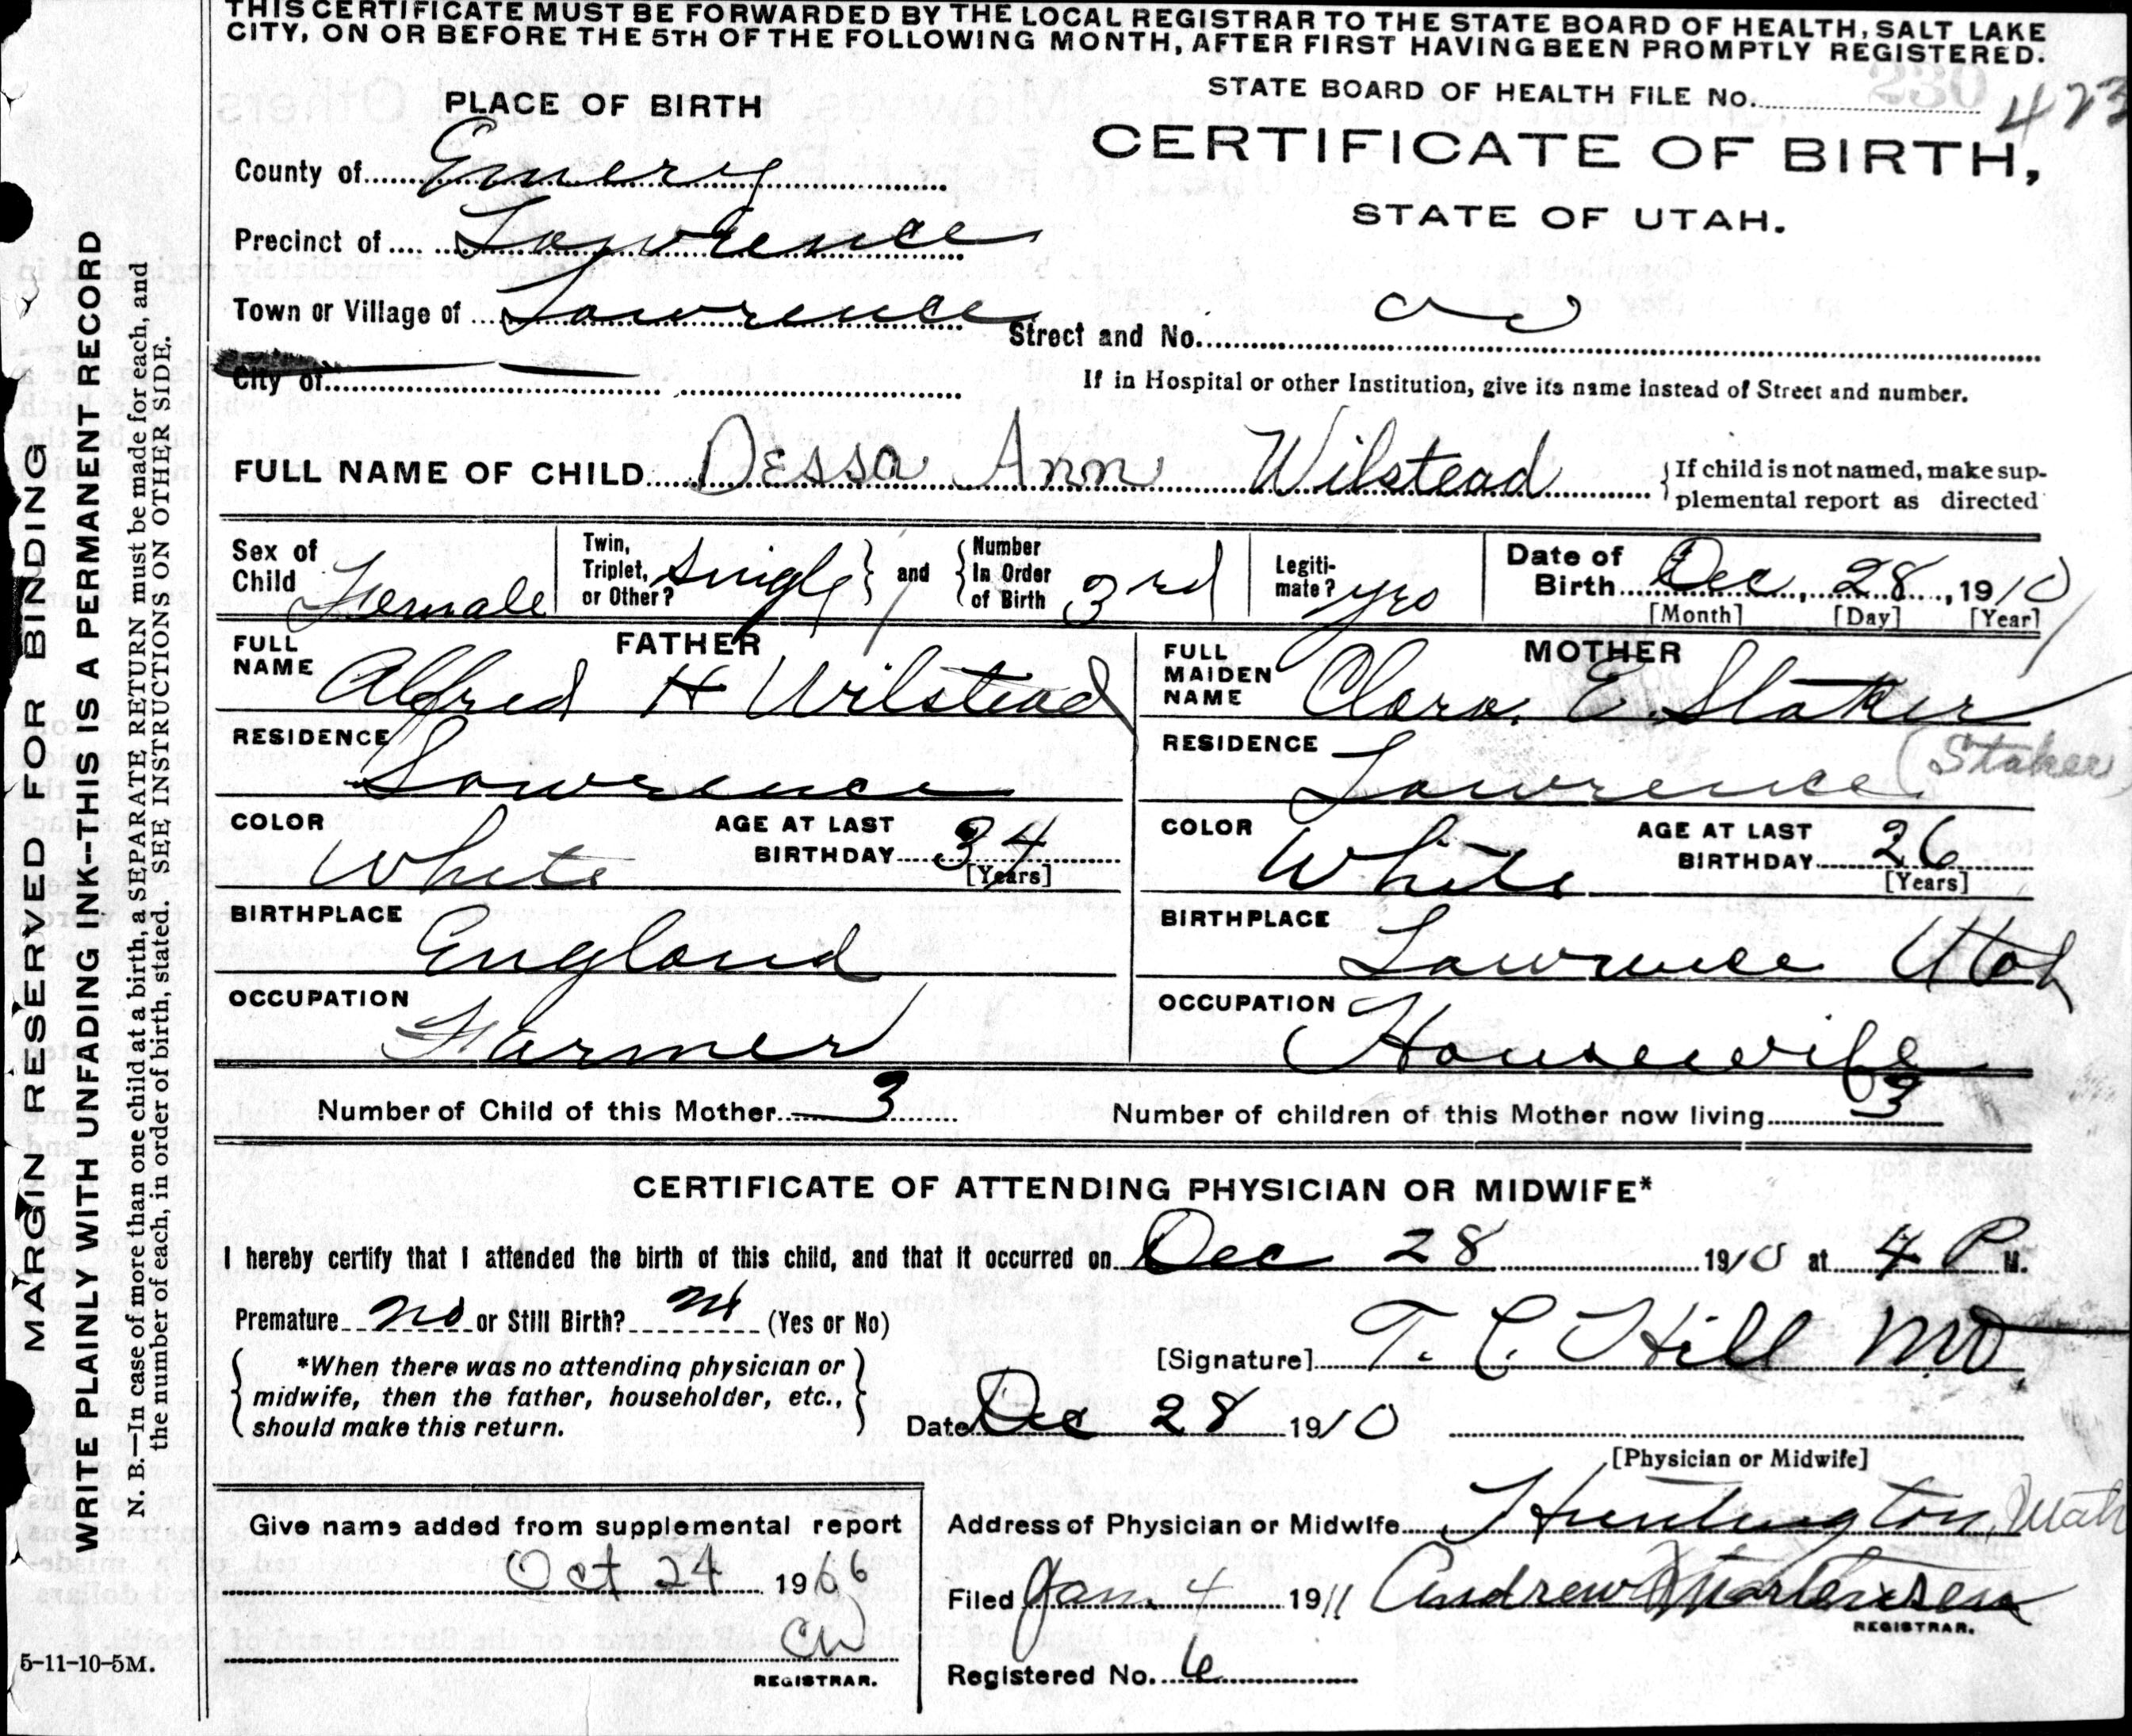 THIS CERTIFICATE MUST BE FORWARDED BY THE LOCAL REGISTRAR TO THE STATE BOARD OF HEALTH, SALT LAKE
CITY, ON OR BEFORE THE 5TH OF THE FOLLOWING MONTH, AFTER FIRST HAVING BEEN PROMPTLY REGISTERED.
STATE BOARD OF HEALTH FILE No. 230 423
PLACE OF BIRTH
CERTIFICATE OF BIRTH,
STATE OF UTAH.
County of Emery
Precinct of Lawrence
Town or Village of Lawrence
Street and No.
City of
If in Hospital or other Institution, give its name instead of Street and number.
FULL NAME OF CHILD Dessa Ann Wilstead
If child is not named, make sup-
plemental report as directed
Sex of Child Female
Twin, Triplet, or Other? Single and Number In Order of Birth 3rd
Legiti-mate? yes
Date of Birth Dec, 28, 1910
[Month] [Day] [Year]
FATHER
FULL NAME Alfred H Wilstead
MOTHER
FULL MAIDEN NAME Clara. E. Staker
RESIDENCE Lawrence
RESIDENCE Lawrence (Staker)
COLOR White AGE AT LAST BIRTHDAY 34 [Years]
COLOR White AGE AT LAST BIRTHDAY 26 [Years]
BIRTHPLACE England
BIRTHPLACE Lawrence Utah
OCCUPATION Farmer
OCCUPATION Housewife
Number of Child of this Mother 3
Number of children of this Mother now living 3
CERTIFICATE OF ATTENDING PHYSICIAN OR MIDWIFE*
I hereby certify that I attended the birth of this child, and that it occurred on Dec 28 1910 at 4 P M.
Premature no or Still Birth? no (Yes or No)
[Signature] T. C. Hill MD
*When there was no attending physician or
midwife, then the father, householder, etc.,
should make this return.
Date Dec 28 1910
[Physician or Midwife]
Give name added from supplemental report
Oct 24 1966
CW
REGISTRAR.
Address of Physician or Midwife Huntington, Utah
Filed Jan. 4 1911 Andrew Mortensen
REGISTRAR.
Registered No. 6
5-11-10-5M.
MARGIN RESERVED FOR BINDING
WRITE PLAINLY WITH UNFADING INK--THIS IS A PERMANENT RECORD
N. B.—In case of more than one child at a birth, a SEPARATE RETURN must be made for each, and
the number of each, in order of birth, stated. SEE INSTRUCTIONS ON OTHER SIDE.